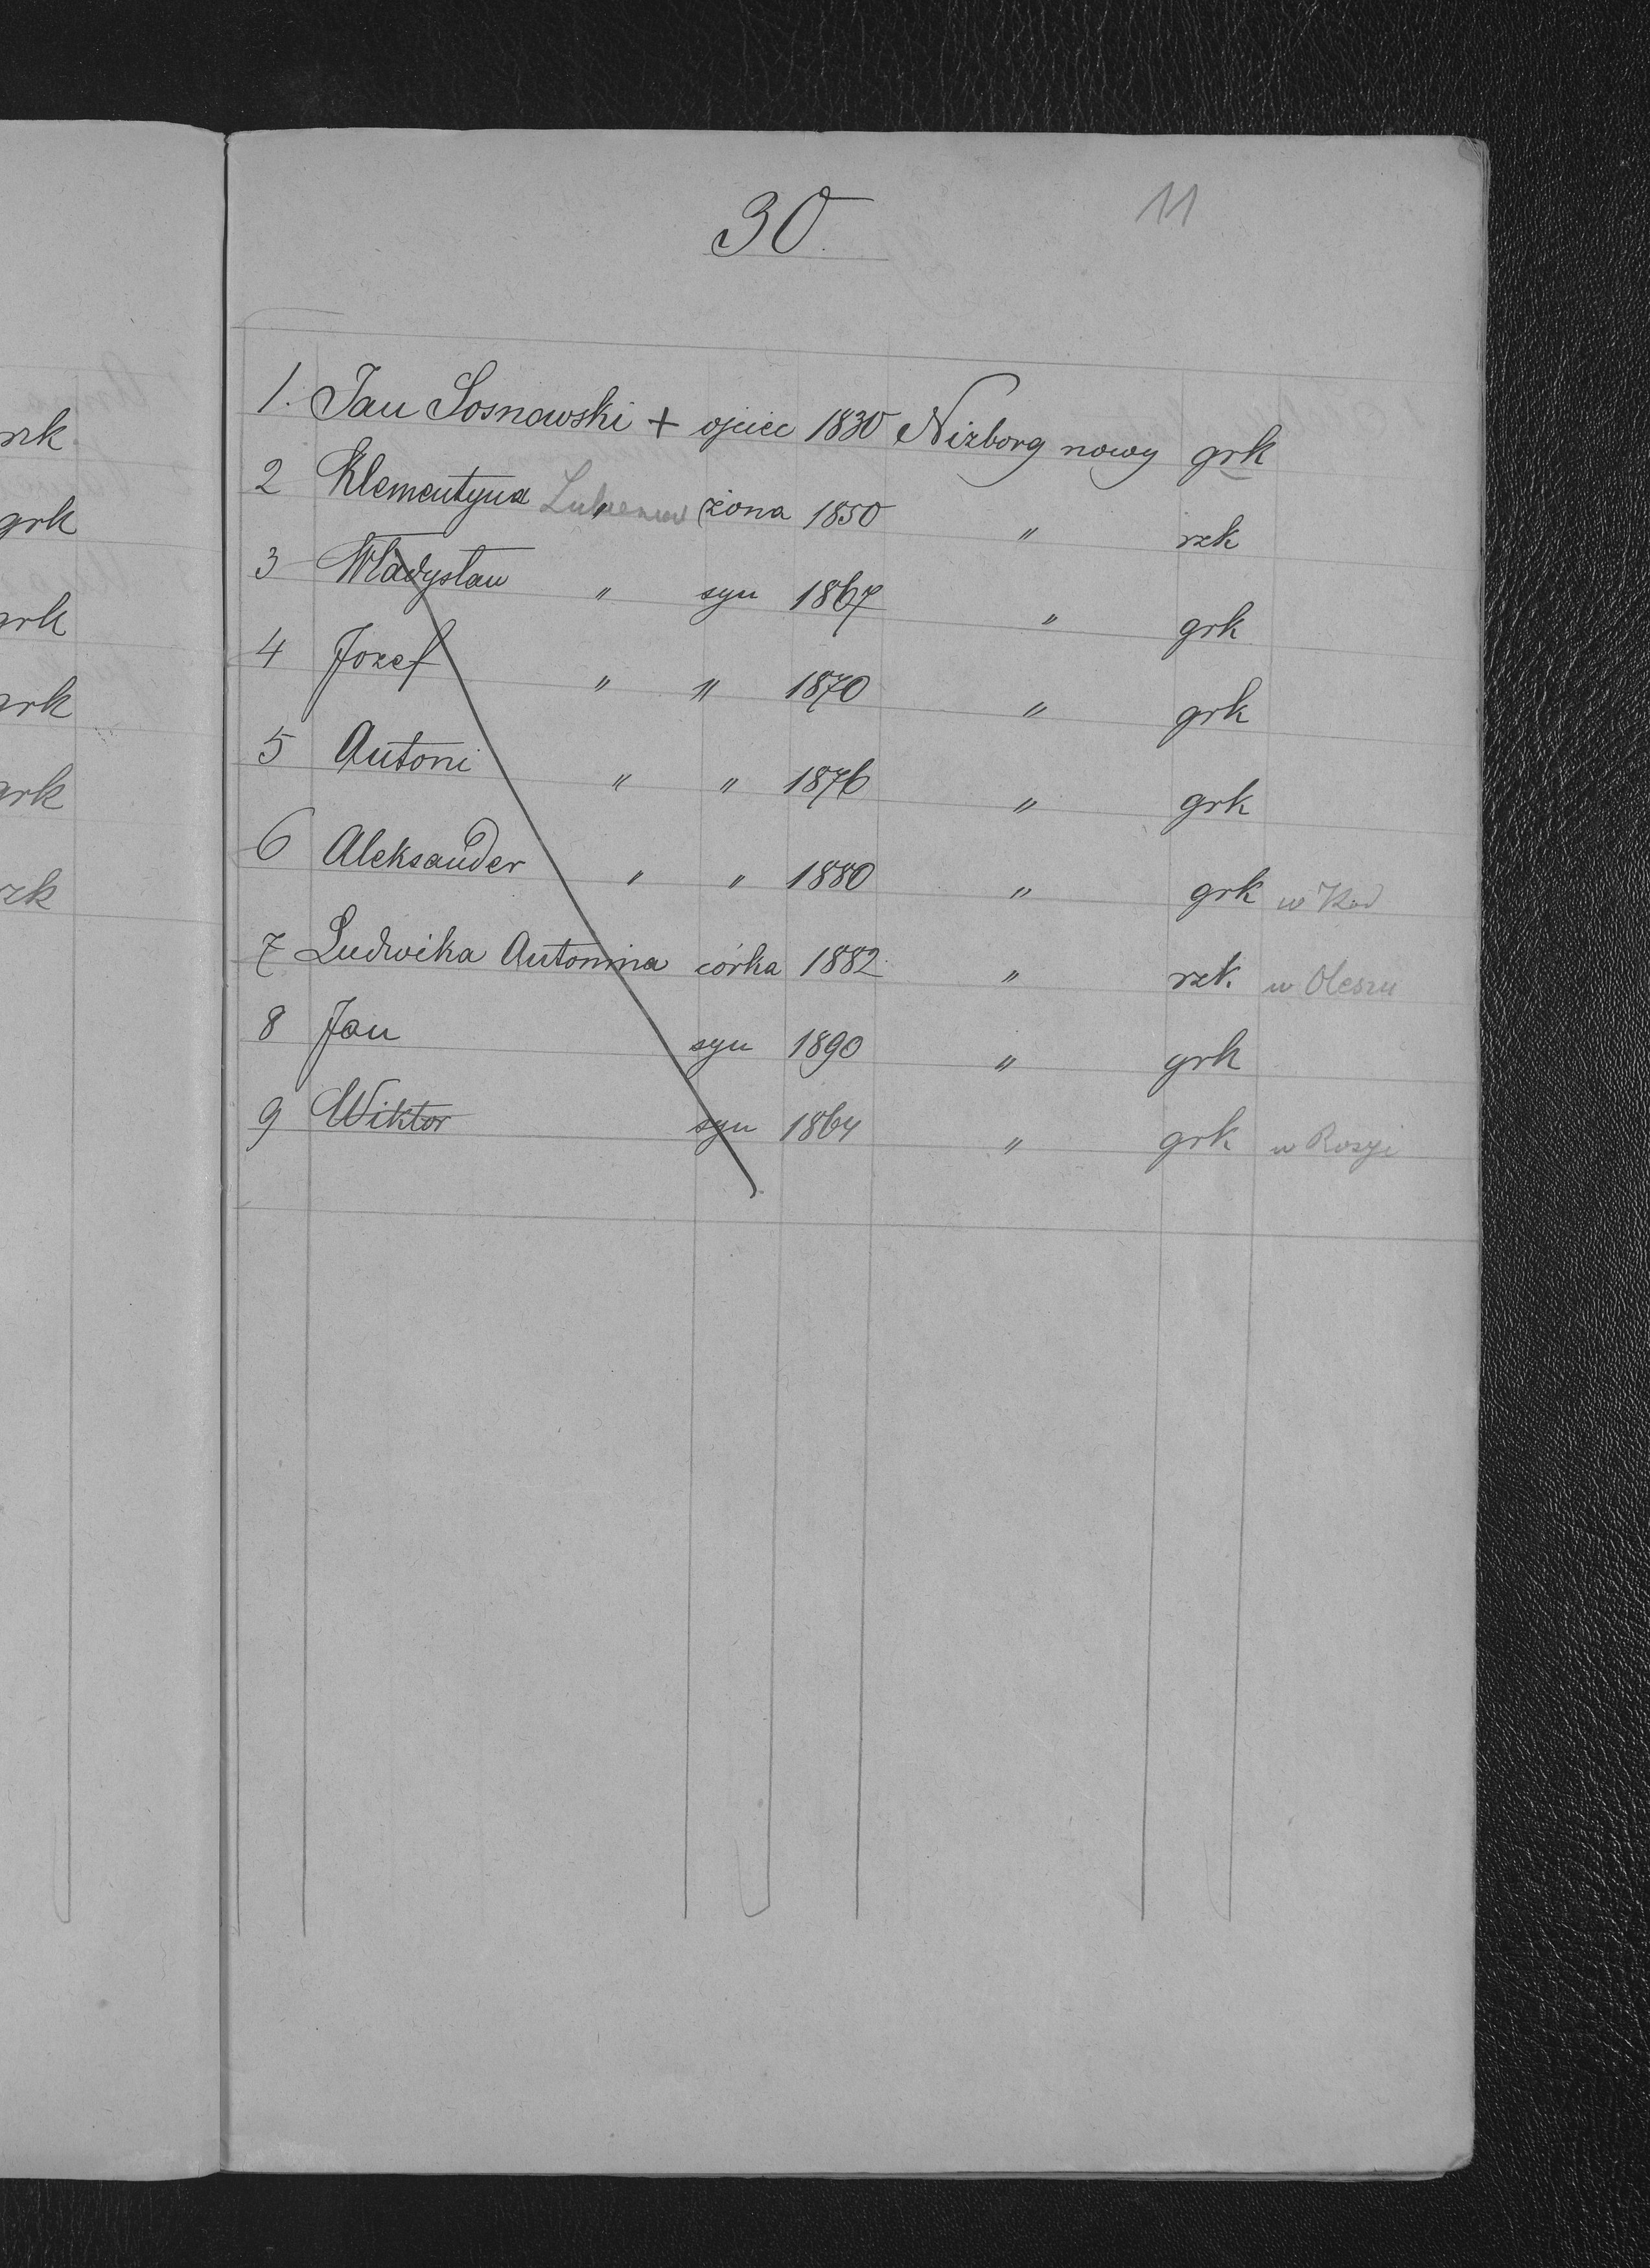 30
11
1. Jan Sosnowski + ojciec 1830 Nizborg nowy grk
2 Klementyna " żona 1850 " rzk
3 Władysław " syn 1867 " grk
4 Jozef " " 1870 " grk
5 Antoni " " 1876 " grk
6 Aleksander " " 1880 " grk w
7 Ludwika Antonina córka 1882 " rzk. w
8 Jan syn 1890 " grk
9 Wiktor syn 1864 " grk w Rosyi
rzk
grk
grk
grk
grk
rzk